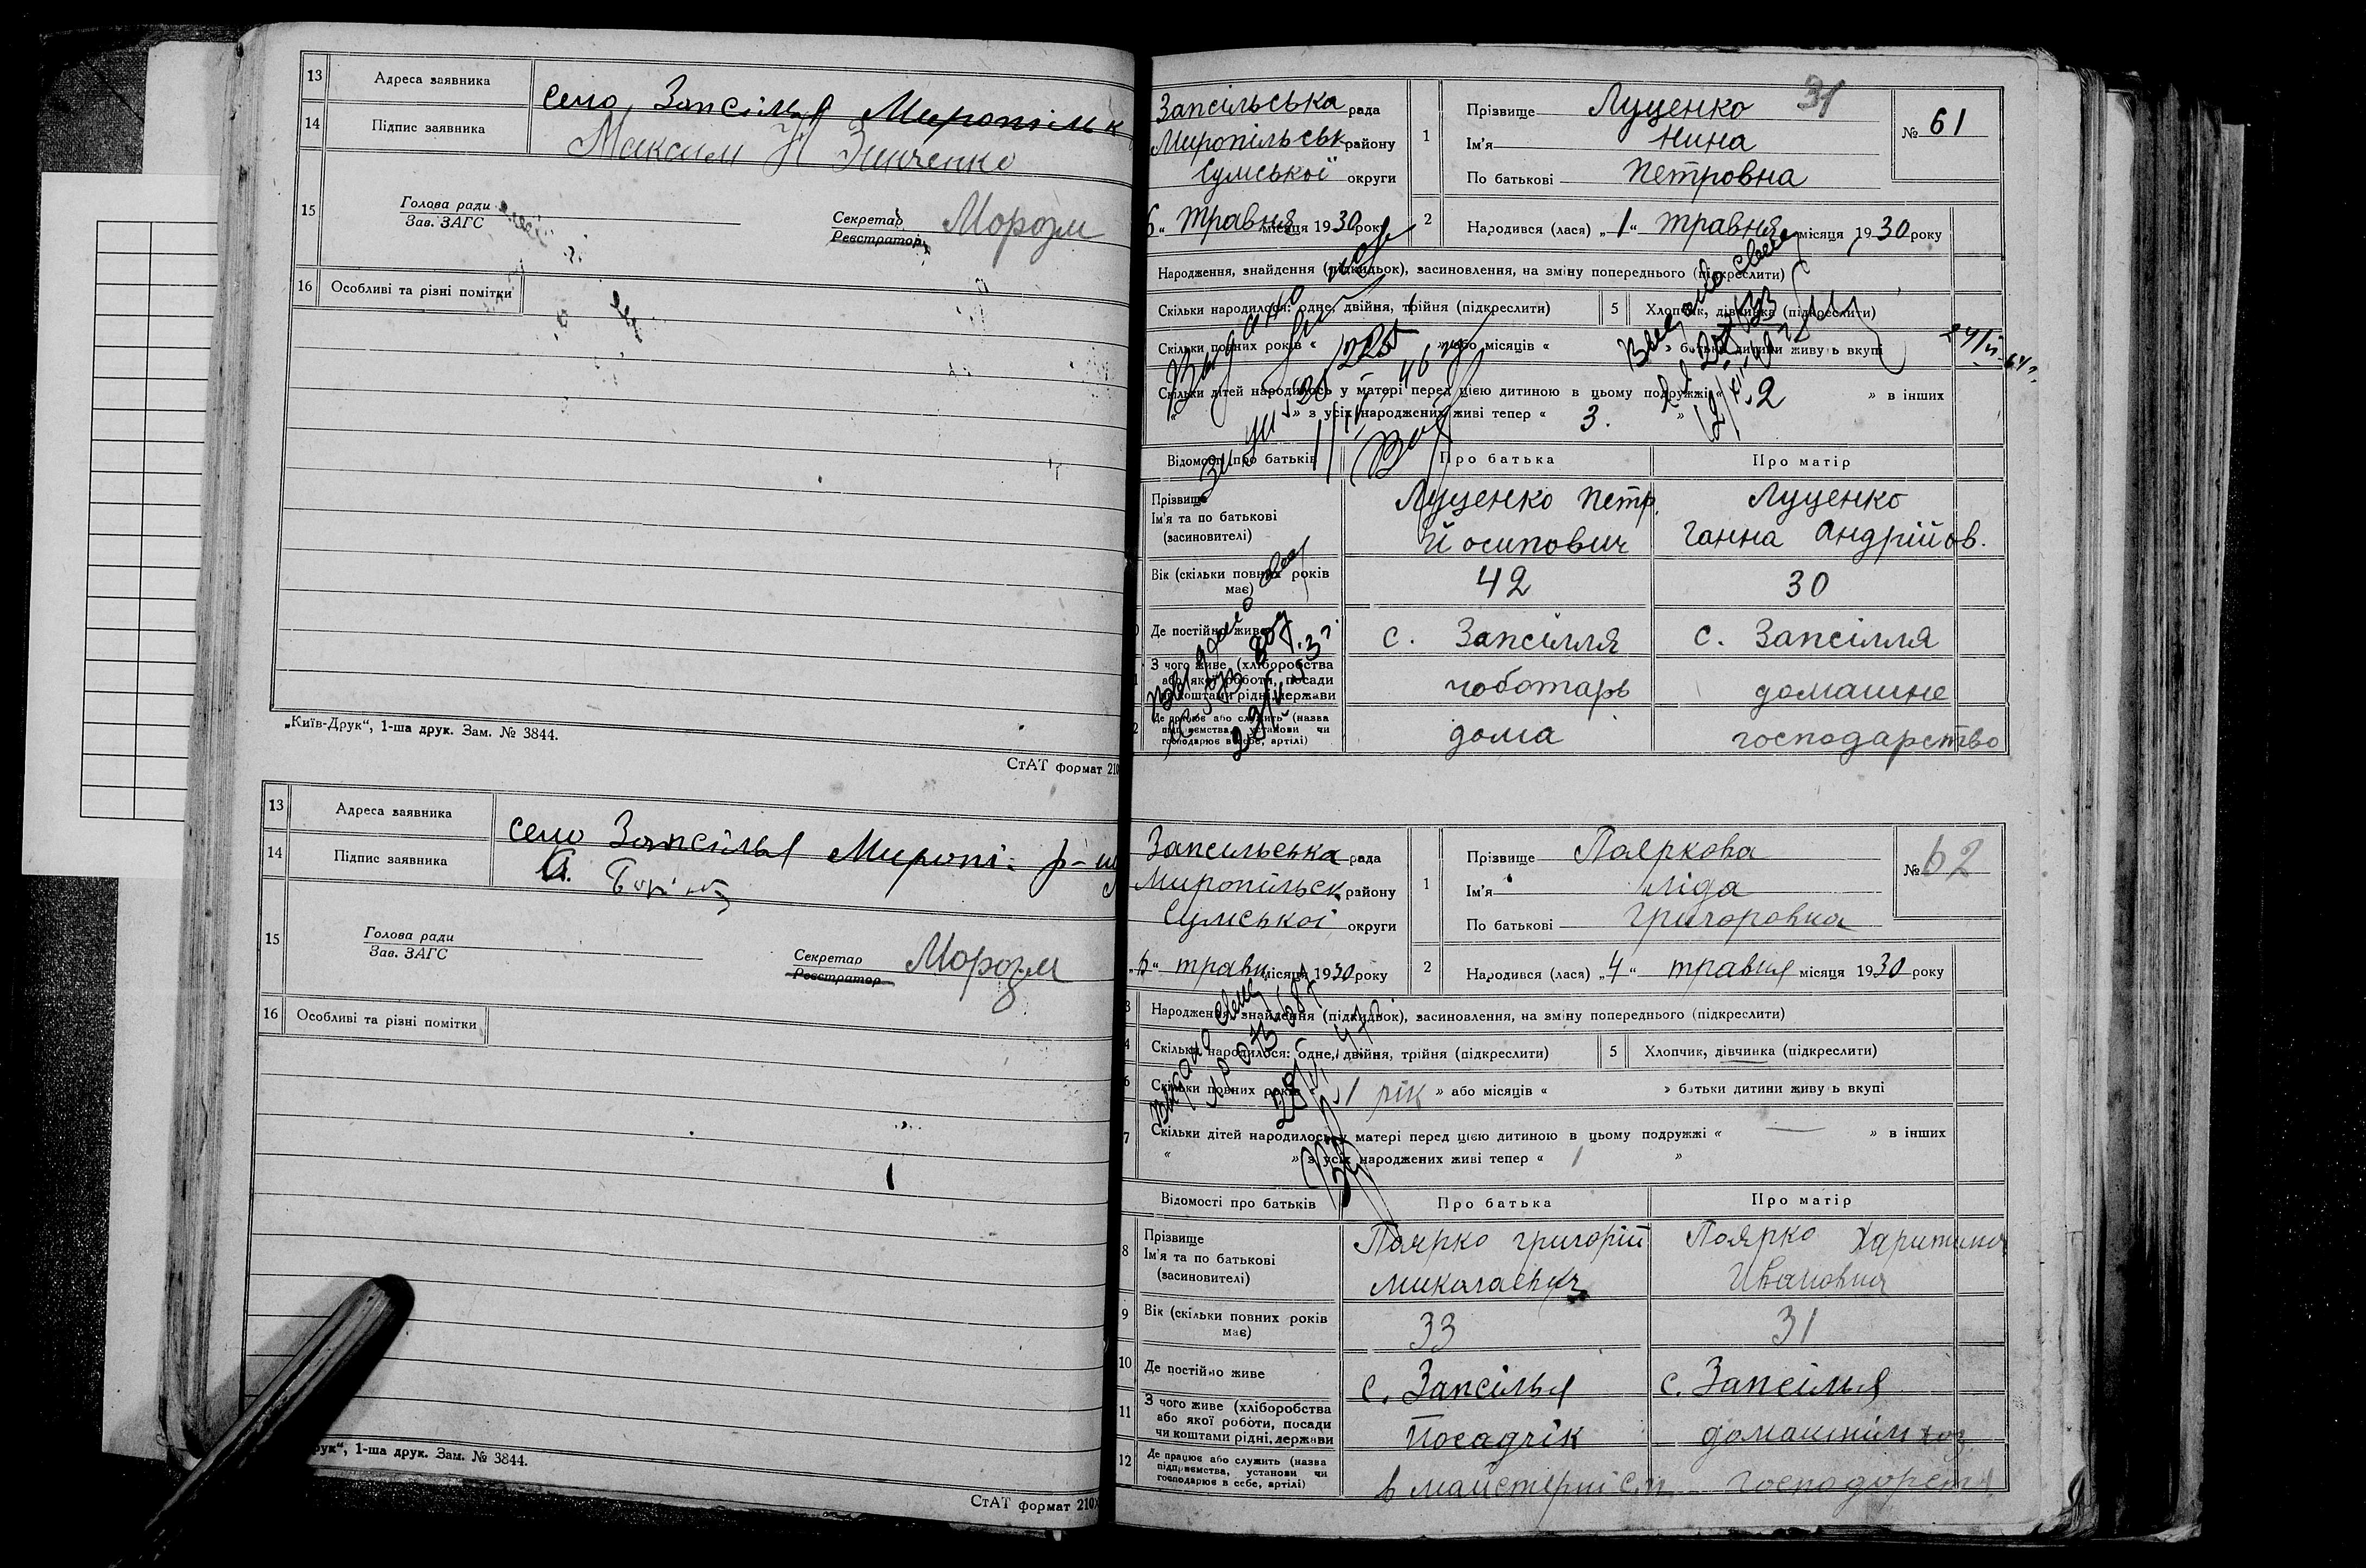 13 Адреса заявника село Запсілья Миропільк
14 Підпис заявника Максим Зинченко
15 Голова ради Секретар Морозм
Зав. ЗАГС Реєстратор
16 Особливі та різні помітки
„Київ-Друк“, 1-ша друк. Зам. № 3844.
СтАТ формат 210
13 Адреса заявника село Запсілья Миропі- р-
14 Підпис заявника
15 Голова ради Секретар Морозм
Зав. ЗАГС Реєстратор
16 Особливі та різні помітки
рук“, 1-ша друк. Зам. № 3844.
СтАТ формат 210
31
Запсільська рада
Миропільськ району
Сумської округи
6 “ травня місяця 1930 року
1 Прізвище Луценко
Ім'я Нина
По батькові Петровна
№ 61
2 Народився (лася) „1“ травня місяця 1930 року
Народження, знайдення (підкидьок), засиновлення, на зміну попереднього (підкреслити)
Скільки народилося: одне, двійня, трійня (підкреслити) 5 Хлопчик, дівчинка (підкреслити)
Скільки повних років « » або місяців « » батьки дитини живуть вкупі
Скільки дітей народилось у матері перед цією дитиною в цьому подружжі « 2 » в інших
« » з усіх народжених живі тепер « 3. »
Відомості про батьків Про батька Про матір
Прізвище
Ім'я та по батькові
(засновителі)
Луценко Петр.
Йосипович
Луценко
Ганна Андрійов.
Вік (скільки повних років має) 42 30
Де постійно живе с. Запсілля с. Запсілля
З чого живе (хліборобства
або якої роботи, посади
чи коштами рідні, держави
чоботарь домашне
Де працює або служить (назва
підприємства, установи чи
господарює в себе, артілі)
дома господарство
Запсильська рада
Миропільск району
Сумської округи
„6“ травн місяця 1930 року
1 Прізвище Пояркова
Ім'я Ліда
По батькові Григоровна
№ 62
2 Народився (лася) „4“ травня місяця 1930 року
3 Народження, знайдення (підкидьок), засиновлення, на зміну попереднього (підкреслити)
4 Скільки народилося: одне, двійня, трійня (підкреслити) 5 Хлопчик, дівчинка (підкреслити)
6 Скільки повних років « 1 рік » або місяців « » батьки дитини живуть вкупі
7 Скільки дітей народилось у матері перед цією дитиною в цьому подружжі « — » в інших
« » з усіх народжених живі тепер « 1 »
Відомості про батьків Про батька Про матір
8 Прізвище
Ім'я та по батькові
(засиновителі)
Поярко Григорій
Миколаевич
Поярко Харитина
Ивановна
9 Вік (скільки повних років має) 33 31
10 Де постійно живе с. Запсілья с. Запсілья
11 З чого живе (хліборобства
або якої роботи, посади
чи коштами рідні, держави
12 Де працює або служить (назва
підприємства, установи чи
господарює в себе, артілі)